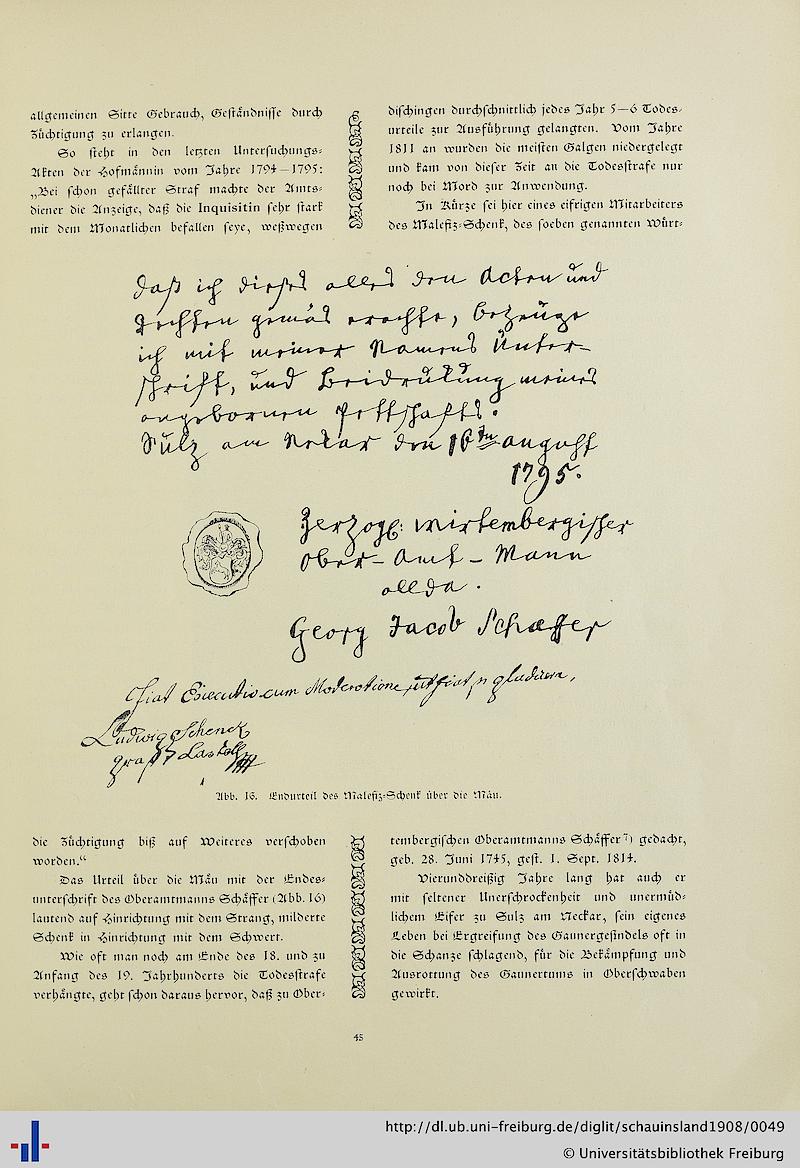 allgemeinen Sitte Gebrauch, Geständnisse durch
Züchtigung zu erlangen.
So steht in den letzten Untersuchungs-
Akten der Hofmännin vom Jahre 1794–1795:
„Bei schon gefällter Straf machte der Amts-
diener die Anzeige, daß die Inquisitin sehr stark
mit dem Monatlichen befallen seye, weßwegen
dischingen durchschnittlich jedes Jahr 5–6 Todes-
urteile zur Ausführung gelangten. Vom Jahre
1811 an wurden die meisten Galgen niedergelegt
und kam von dieser Zeit an die Todesstrafe nur
noch bei Mord zur Anwendung.
In Kürze sei hier eines eifrigen Mitarbeiters
des Malefiz-Schenk, des soeben genannten Würt-
daß ich dieses alles den Acten und
Rechten gemäs erachte, bezeuge
ich mit meiner Namens Unter-
schrift, und Beidrukung meines
angebornen Pettschafts.
Sulz am Nekar den 16ten august
1795.
Herzogl: wirtembergischer
Ober-Amt-Mann
allda.
Georg Jacob Schæffer
Fiat Executio cum Moderatione, ut fiat p gladium,
Ludwig Schenck
graf z Castell
Abb. 16. Endurteil des Malefiz-Schenk über die Mäu.
die Züchtigung biß auf Weiteres verschoben
worden.“
Das Urteil über die Mäu mit der Endes-
unterschrift des Oberamtmanns Schäffer (Abb. 16)
lautend auf Hinrichtung mit dem Strang, milderte
Schenk in Hinrichtung mit dem Schwert.
Wie oft man noch am Ende des 18. und zu
Anfang des 19. Jahrhunderts die Todesstrafe
verhängte, geht schon daraus hervor, daß zu Ober-
tembergischen Oberamtmanns Schäffer⁷) gedacht,
geb. 28. Juni 1745, gest. 1. Sept. 1814.
Vierunddreißig Jahre lang hat auch er
mit seltener Unerschrockenheit und unermüd-
lichem Eifer zu Sulz am Neckar, sein eigenes
Leben bei Ergreifung des Gaunergesindels oft in
die Schanze schlagend, für die Bekämpfung und
Ausrottung des Gaunertums in Oberschwaben
gewirkt.
45
http://dl.ub.uni-freiburg.de/diglit/schauinsland1908/0049
© Universitätsbibliothek Freiburg